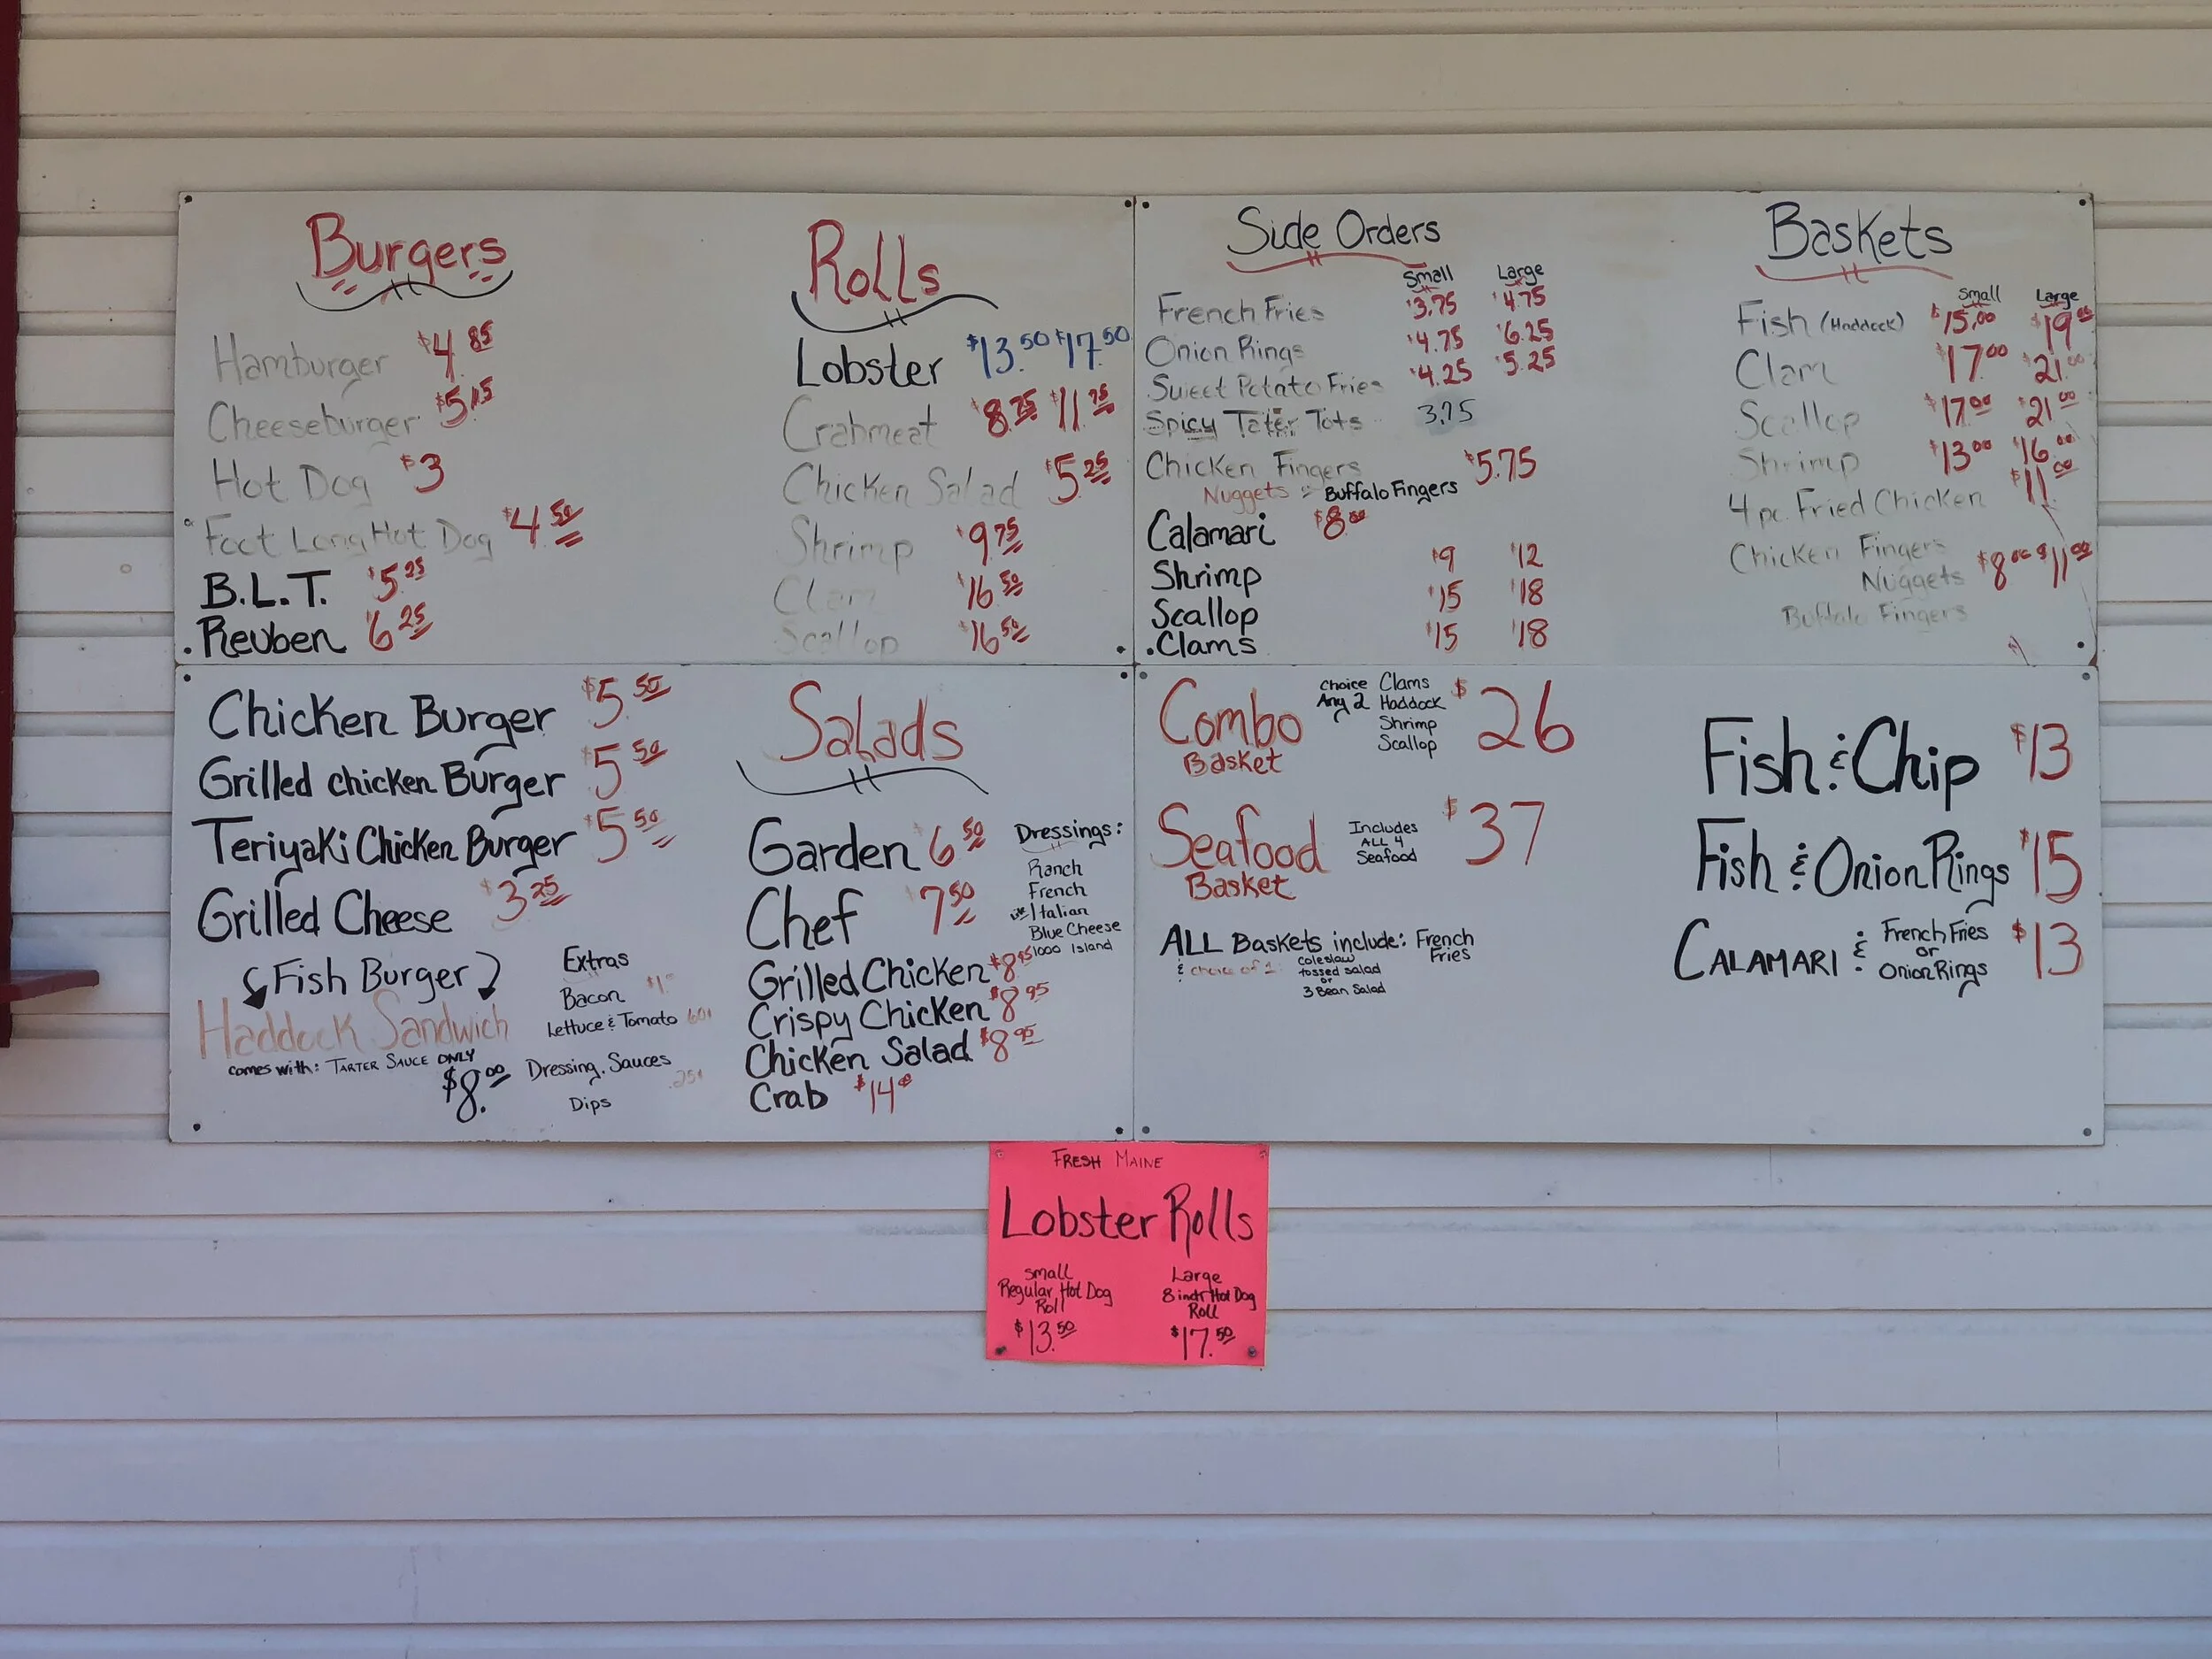 Burgers
Hamburger $4.85
Cheeseburger $5.15
Hot Dog $3
Foot Long Hot Dog $4.50
B.L.T. $5.25
Reuben $6.25
Rolls
Lobster $13.50 $17.50
Crabmeat $8.75 $11.75
Chicken Salad $5.25
Shrimp $9.75
Clam $16.50
Scallop $16.50
Side Orders
Small Large
French Fries $3.75 $4.75
Onion Rings $4.75 $6.25
Sweet Potato Fries $4.25 $5.25
Spicy Tater Tots 3.75
Chicken Fingers $5.75
Nuggets - Buffalo Fingers
Calamari $8.00
Shrimp $9 $12
Scallop $15 $18
Clams $15 $18
Baskets
Small Large
Fish (Haddock) $15.00 $19.00
Clam $17.00 $21.00
Scallop $17.00 $21.00
Shrimp $13.00 $16.00
4 pc. Fried Chicken $11.00
Chicken Fingers
Nuggets $8.00 $11.00
Buffalo Fingers
Chicken Burger $5.50
Grilled chicken Burger $5.50
Teriyaki Chicken Burger $5.50
Grilled Cheese $3.25
Fish Burger
Haddock Sandwich
comes with: TARTER SAUCE ONLY
$8.00
Extras
Bacon $1
Lettuce & Tomato 60¢
Dressing, Sauces .25¢
Dips
Salads
Garden $6.50
Chef $7.50
Grilled Chicken $8.95
Crispy Chicken $8.95
Chicken Salad $8.95
Crab $14
Dressings:
Ranch
French
Lite Italian
Blue Cheese
1000 Island
Combo
Basket
choice Any 2
Clams
Haddock
Shrimp
Scallop
$26
Seafood
Basket
Includes
ALL 4
Seafood
$37
ALL Baskets include: French
Fries
& choice of 1:
coleslaw
tossed salad
or
3 Bean Salad
Fish & Chip $13
Fish & Onion Rings $15
CALAMARI & French Fries
or
Onion Rings
$13
FRESH MAINE
Lobster Rolls
small
Regular Hot Dog
Roll
$13.50
Large
8 inch Hot Dog
Roll
$17.50